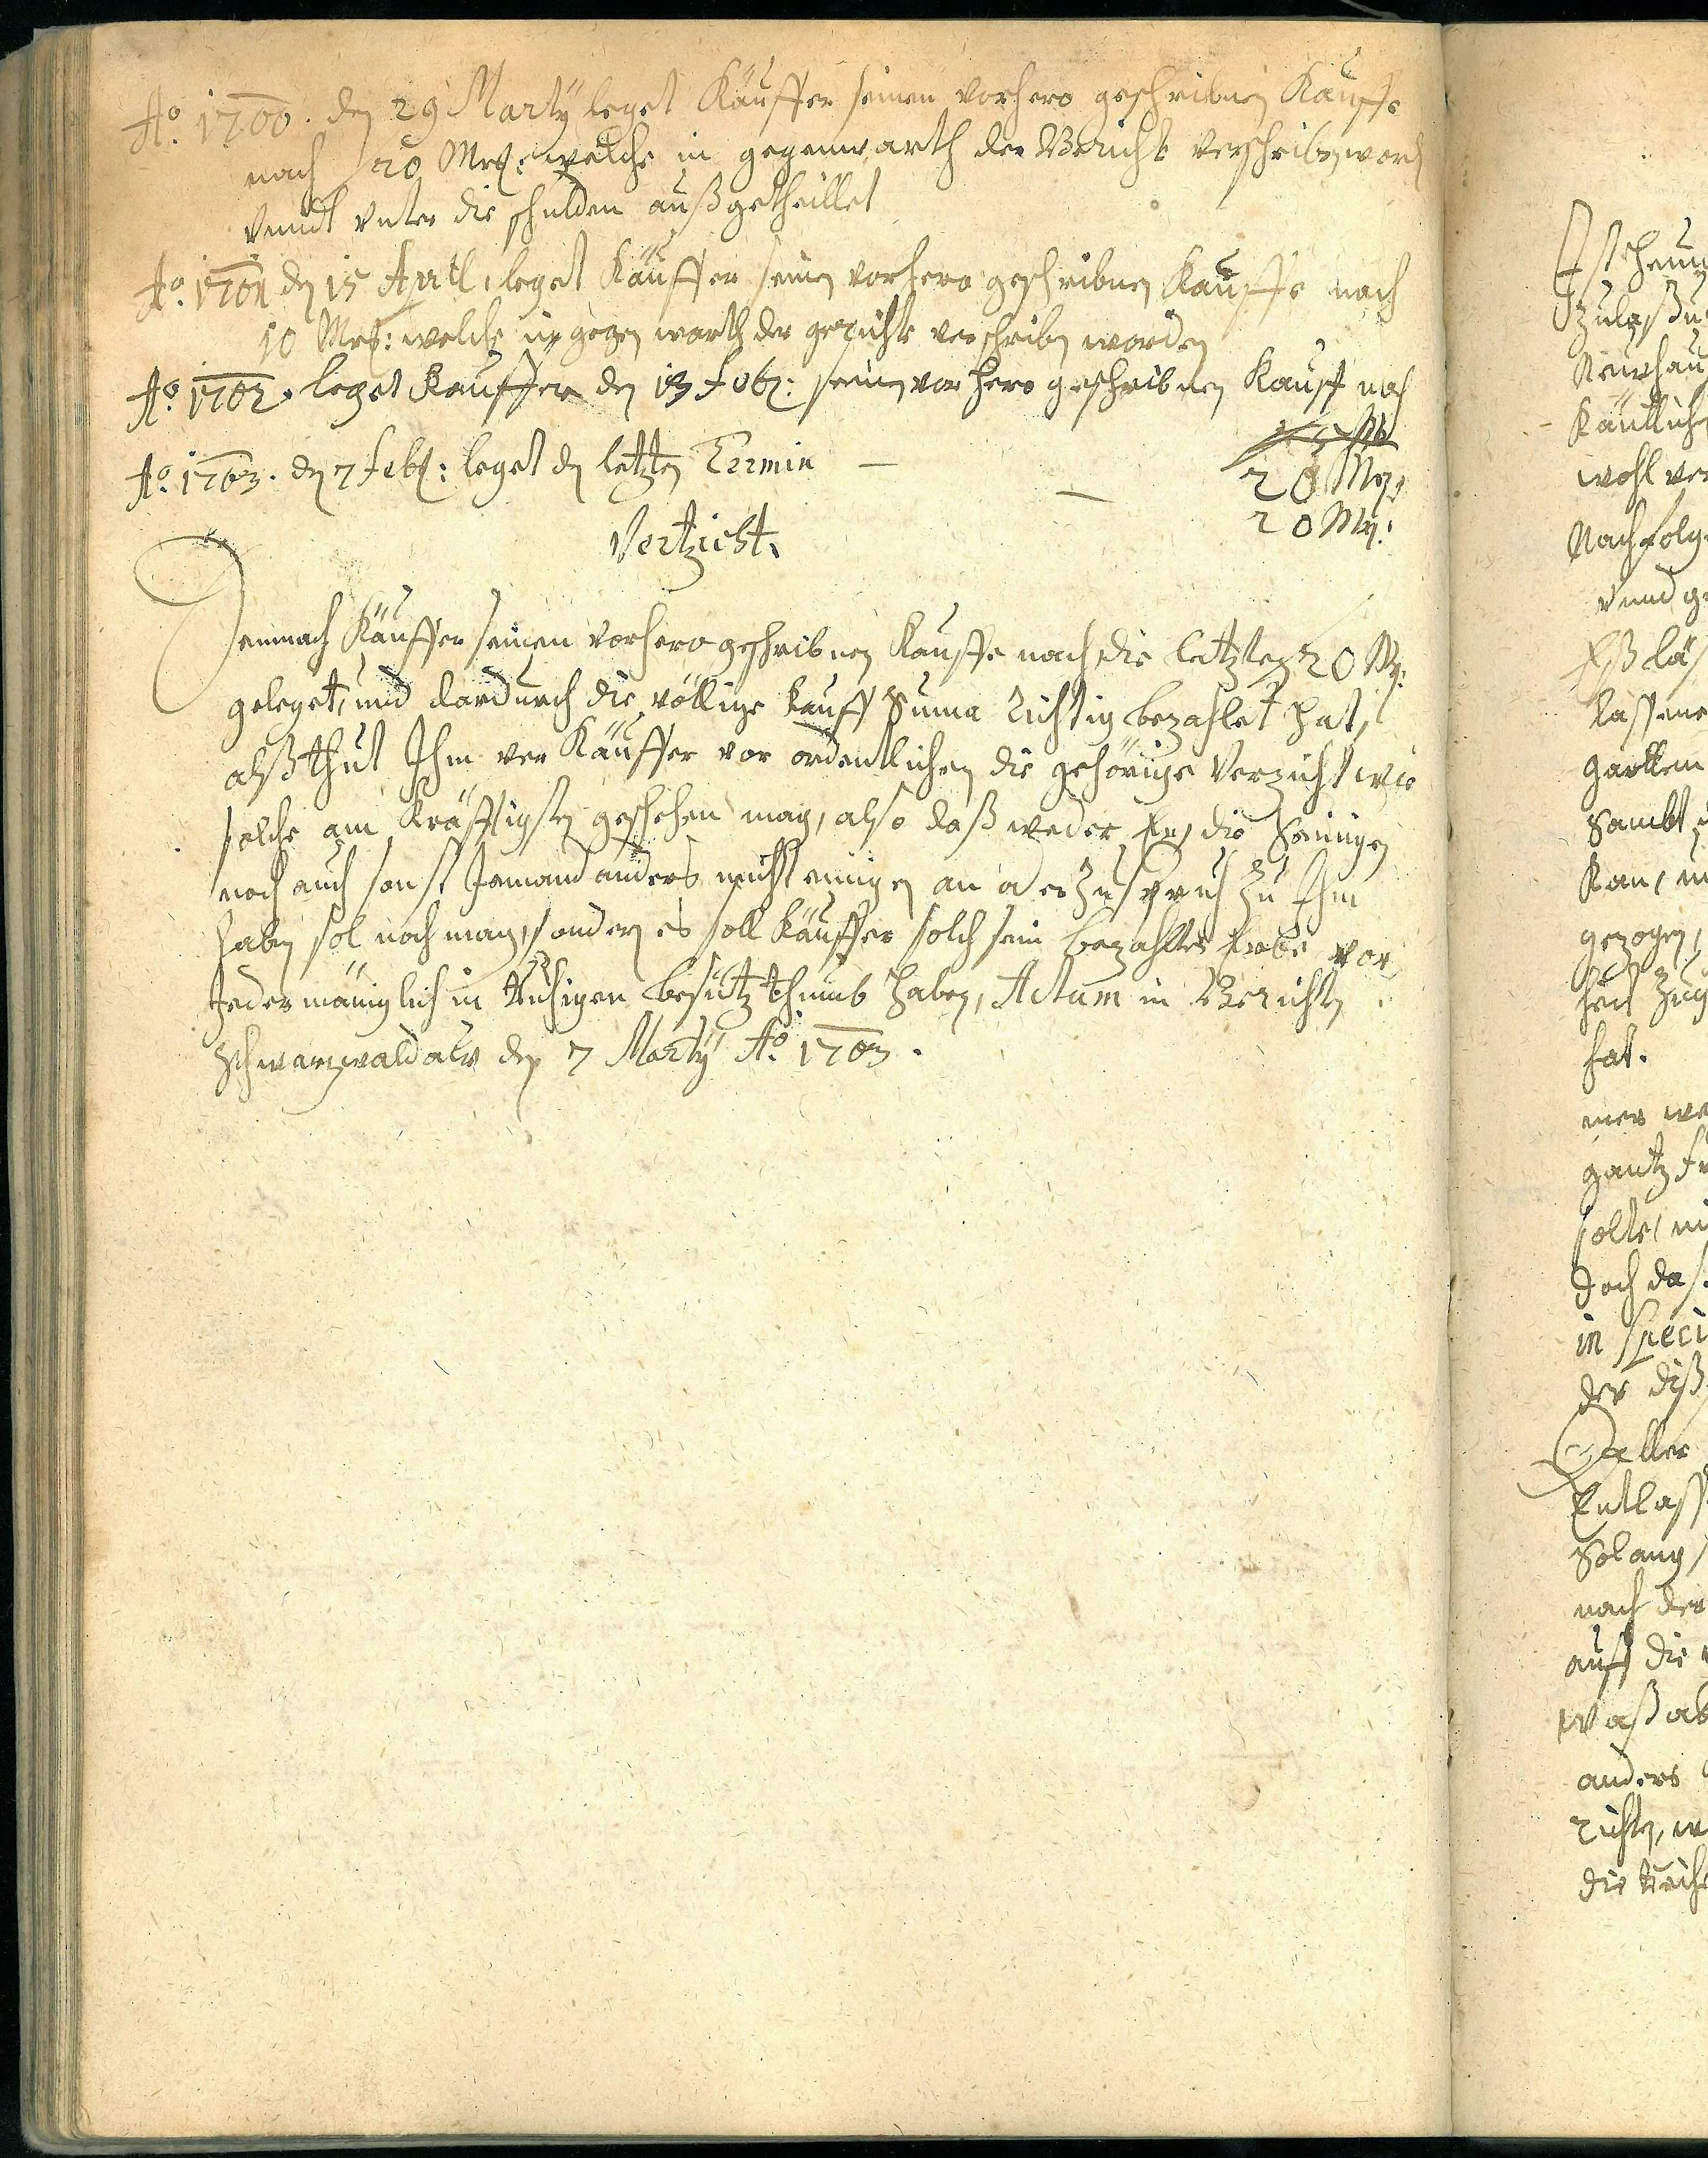 Aō. 1700. den 29 Marty leget Käuffer seinen vorhero geschribnen Kauffe
nach 20 Mrℓ: welche in gegenwarth der Gericht verschriben word
vnndt vnter die schulden außgetheillet
Aō. 1701 den 15 Apríl, leget Käuffer seinen vorhero geschribnen Kauffe nach
10 Mrℓ: welche in gegen warth der gerichte verschriben worden
Aō. 1702. leget Kauffer den 13 Febr: seinen vorhero geschribnen Kauff nach
20 Mrℓ
Aō. 1703. den 7 Febr: leget den letzten Termin — — 20 Mrℓ:
Vertzicht.
Demnach Käuffer seinen vorhero geschribnen Kauffe nach die letzten 20 Mℓ:
geleget, und dardurch die völlige Kauff Suma Richtig bezahlet hat,
alß thut Ihm ver Käuffer vor ordentlichen die gehörige Verzicht wie
solche am Kräfftigsten geschehen mag, also daß weder Er, die Seinigen
noch auch sonst Jemand anders nicht einigen an oder Zuspruch Zu Ihm
haben sol noch mag, sondern es soll Käuffer solch sein bezahltes Erbe vor
Jedermäniglich in Ruhigen besützthumb haben, Actum in Gerichten
Schwarzwaldaw den 7 Marty Aō. 1703.
Zulaßu
Käutlich
wohl ver
Nachfolg
vnnd ge
lassene
gartten
Sambt
Kan,
gezogen,
hat.
gantz
solte,
doch das
in speci
der diß
Entlass
Solang
nach der
auff die
waß ab
anders
richten,